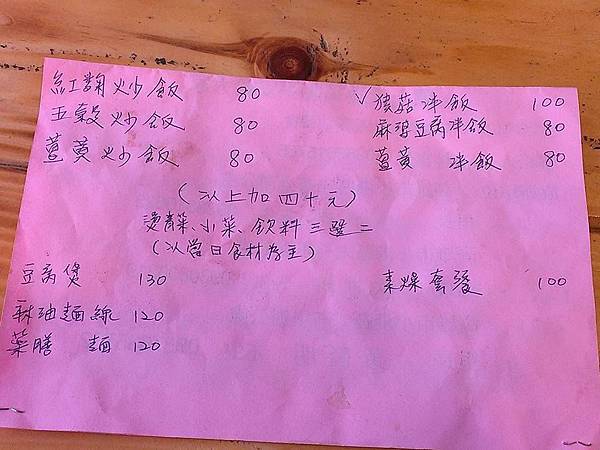 紅麴炒飯 80
五穀炒飯 80
薑黃炒飯 80
✓猴菇拌飯 100
麻婆豆腐拌飯 80
薑黃 拌飯 80
(以上加四十元)
燙青菜、小菜、飲料三選二
(以當日食材為主)
豆腐煲 130
麻油麵線 120
藥膳 麵 120
素燥套餐 100